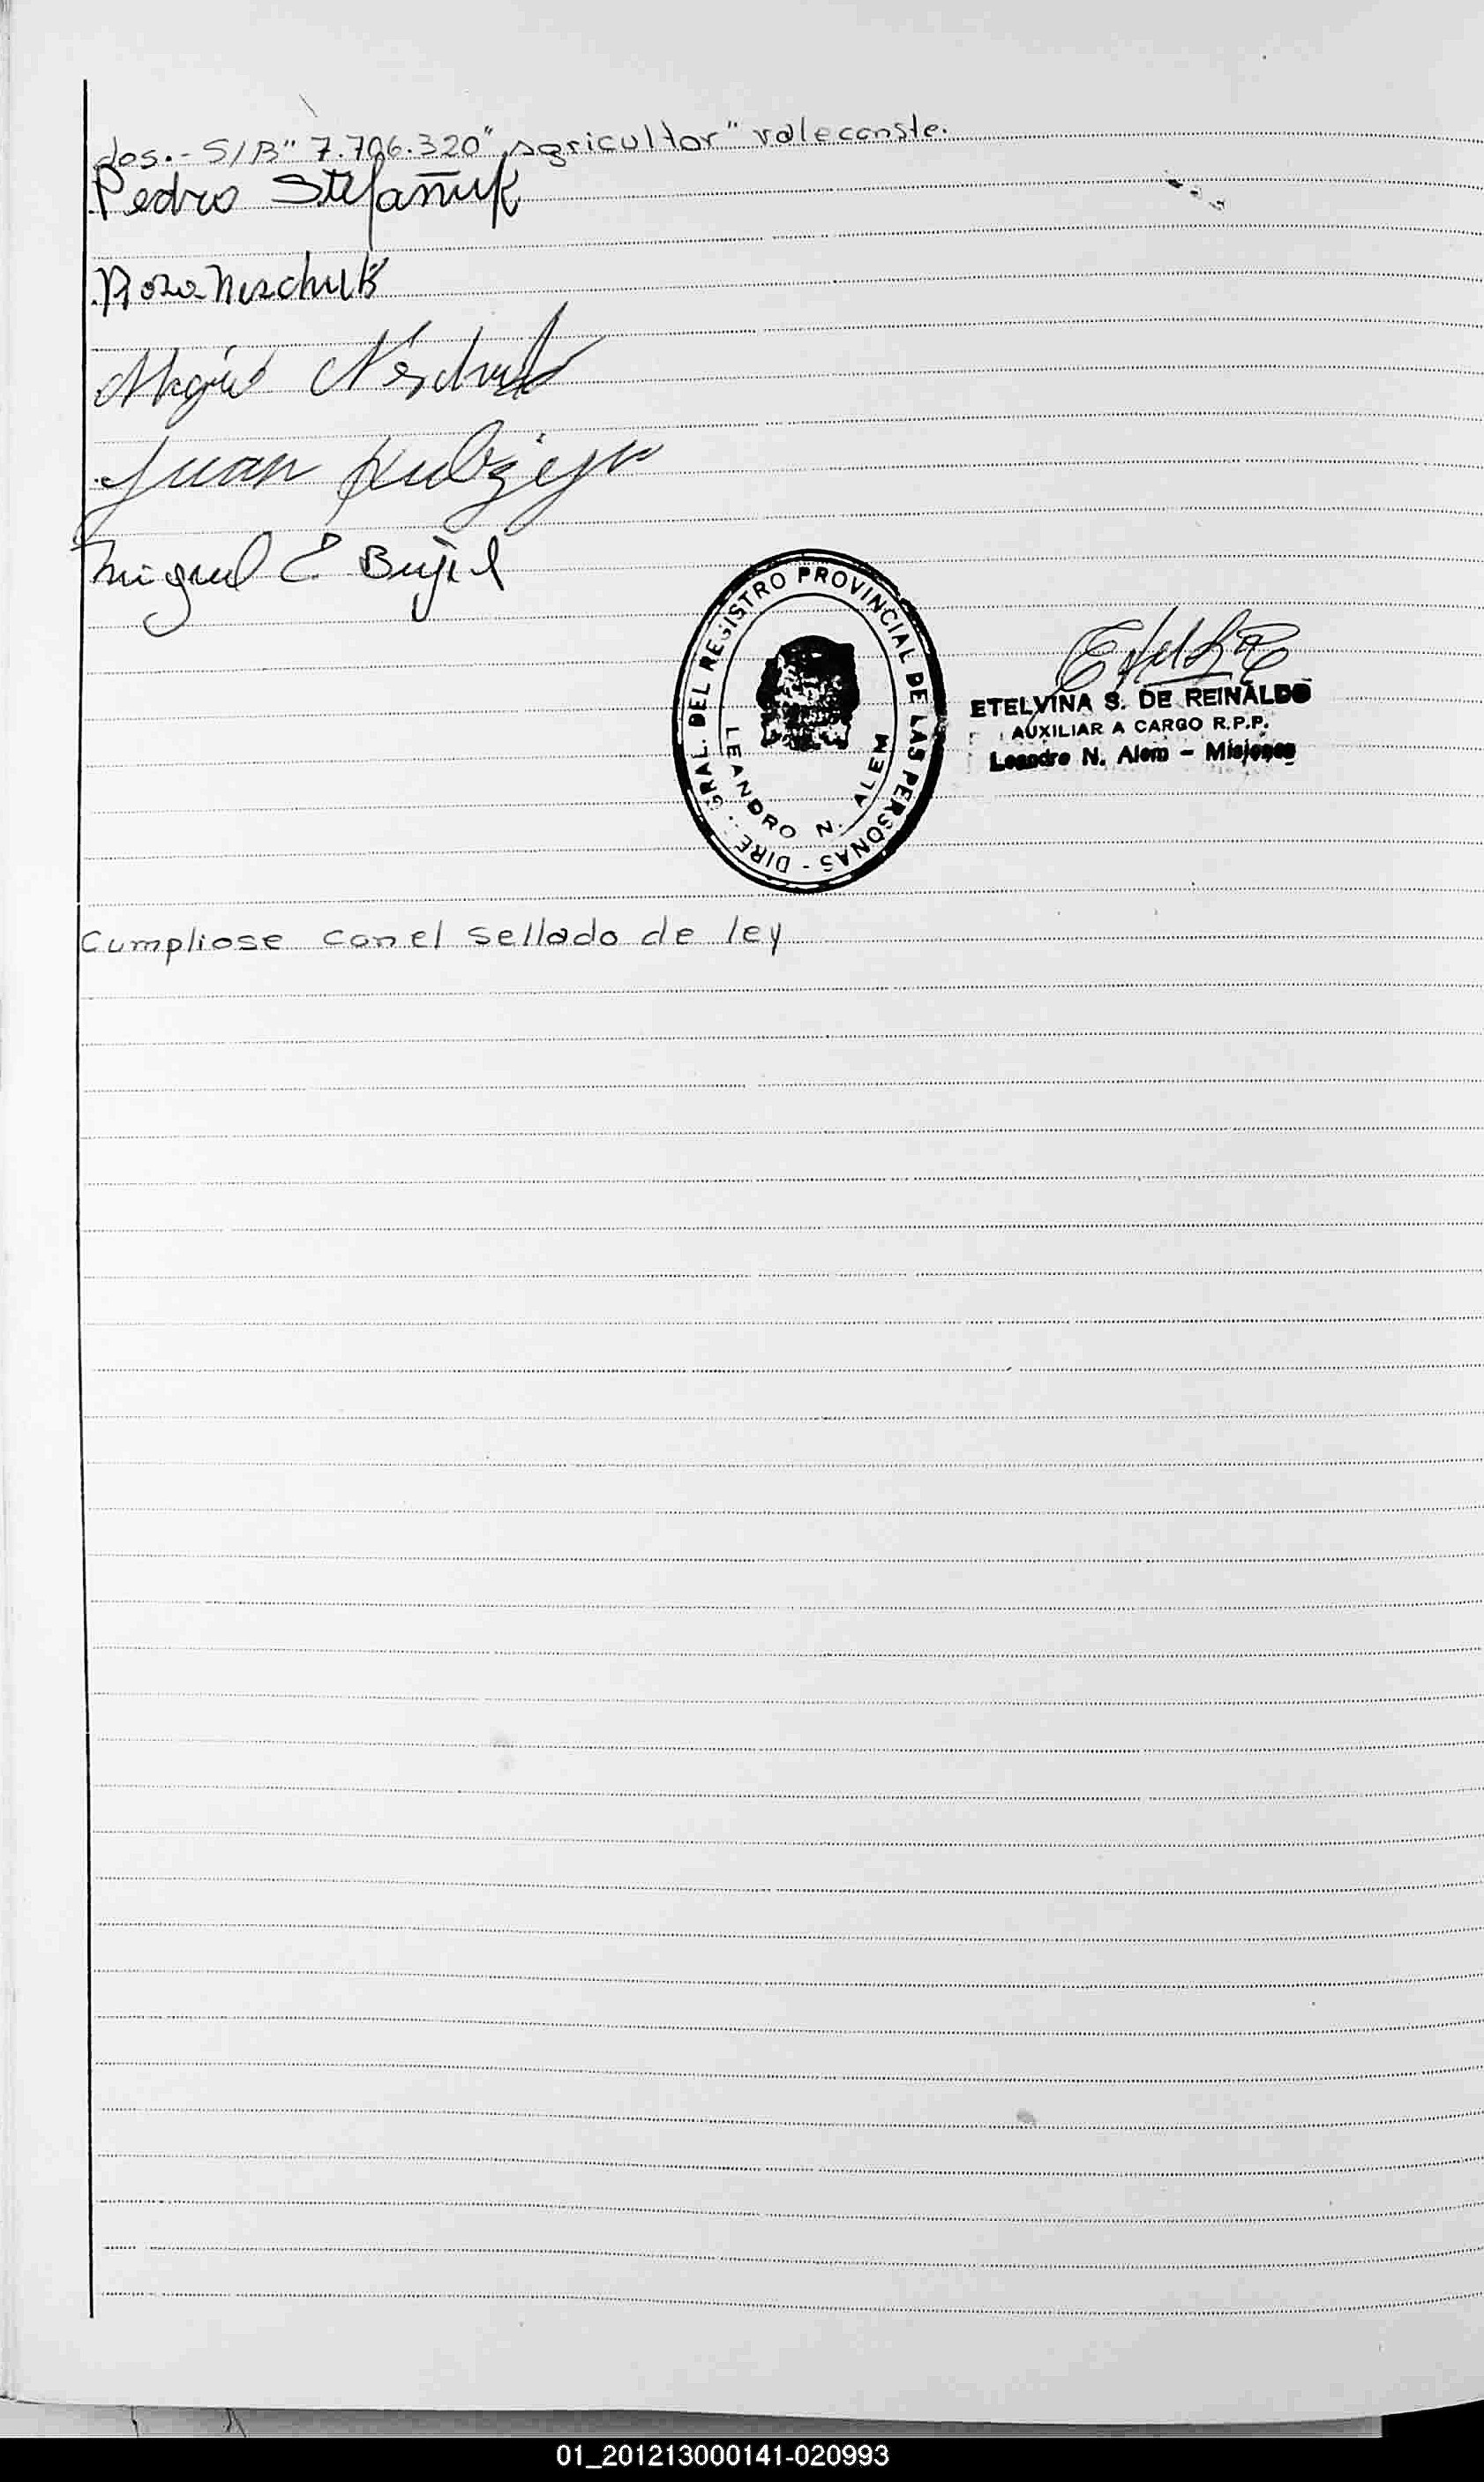 dos.- S/B" 7.706.320" agricultor" vale conste.
Pedro Stefañuk
Rosa Neschuk
Juan
Miguel E. Bujel
DIRE. GRAL. DEL REGISTRO PROVINCIAL DE LAS PERSONAS -
LEANDRO N. ALEM
ETELVINA S. DE REINALDO
AUXILIAR A CARGO R.P.P.
Leandro N. Alem - Misiones
Cumpliose con el sellado de ley
01_201213000141-020993